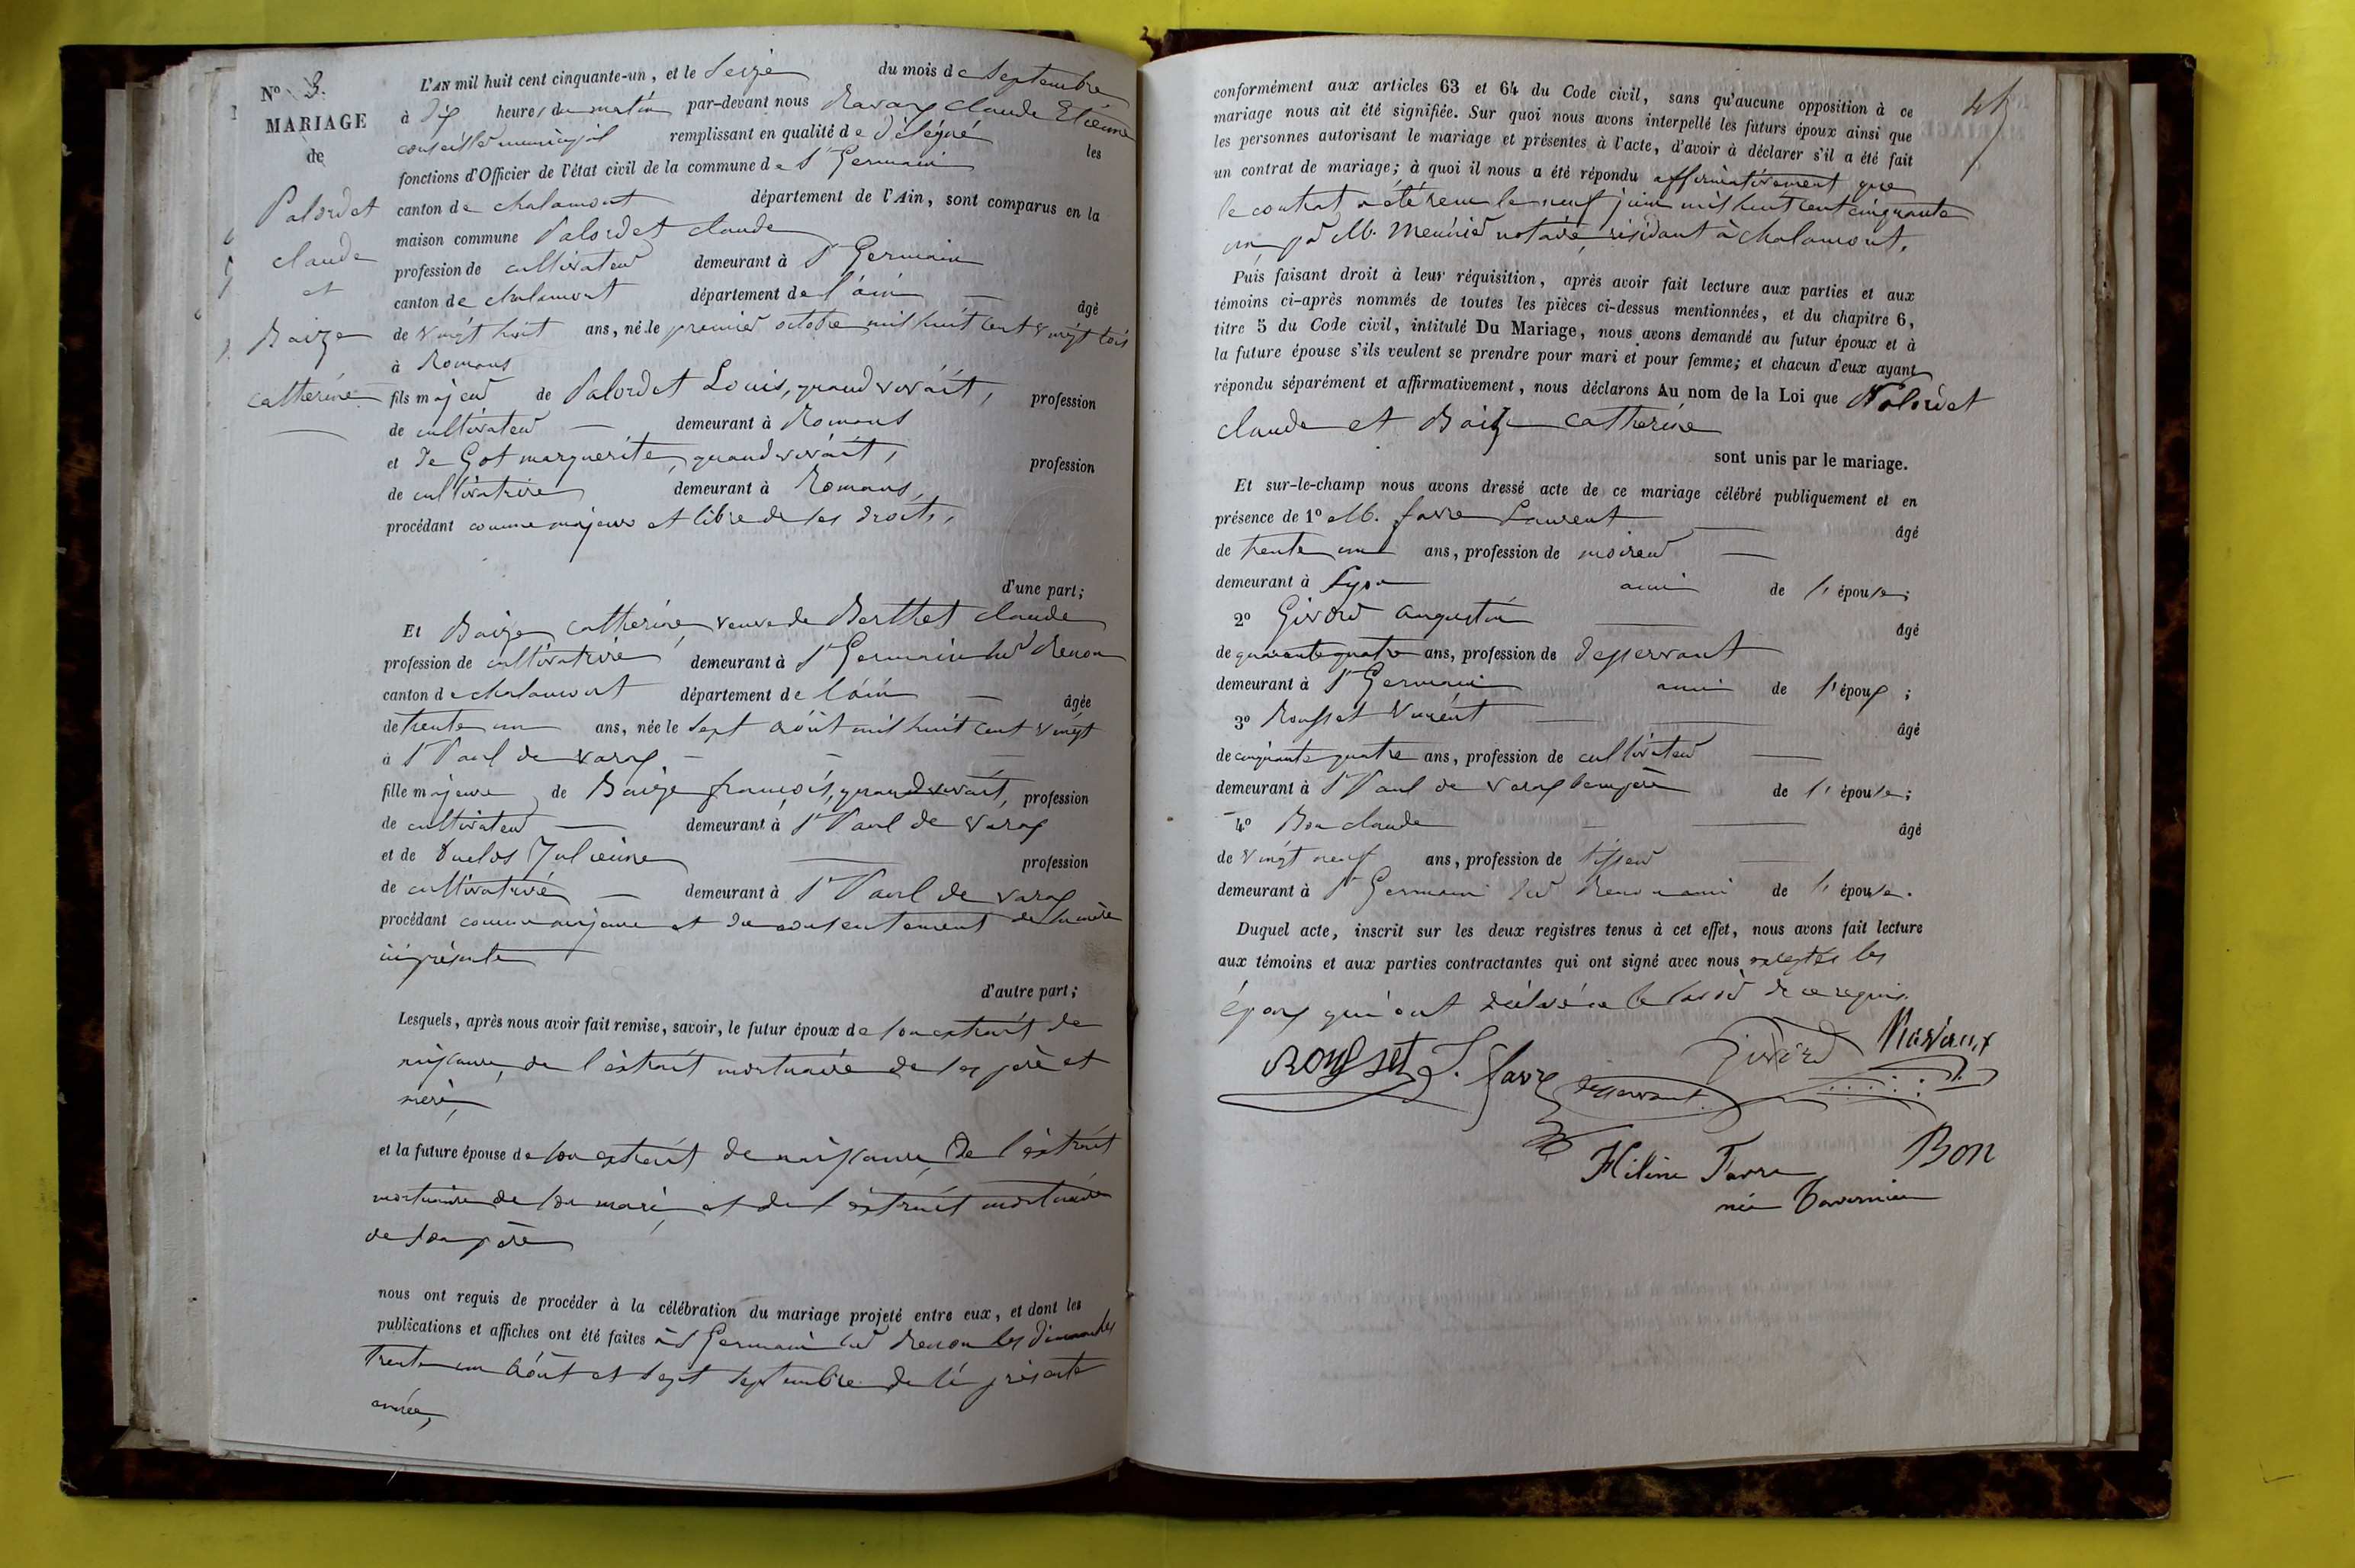 N° 3.
MARIAGE
de
Palordet
claude
et
Baize
catherine
L'AN mil huit cent cinquante-un, et le seize du mois de septembre
à dix heures du matin par-devant nous Ravaux claude Etienne
conseiller municipal remplissant en qualité de délégué les
fonctions d'Officier de l'état civil de la commune de St Germain
canton de chalamont département de l'Ain, sont comparus en la
maison commune Palordet claude
profession de cultivateur demeurant à St Germain
canton de chalamont département de l'ain âgé
de vingt huit ans, né le premier octobre mil huit cent vingt trois
à Romans
fils majeur de Palordet Louis, quand vivait, profession
de cultivateur demeurant à Romans
et de Got marguerite, quand vivait, profession
de cultivatrice demeurant à Romans,
procédant comme majeur et libre de ses droits,
d'une part;
Et Baize catherine veuve de Berthet claude
profession de cultivatrice demeurant à St Germain sur Renon
canton de chalamont département de l'ain âgée
de trente un ans, née le sept août mil huit cent vingt
à St Paul de varax
fille majeure de Baize françois, quand vivait, profession
de cultivateur demeurant à St Paul de varax
et de Duclos Julienne profession
de cultivatrice demeurant à St Paul de varax
procédant comme majeure et du consentement de sa mère
ici présente
d'autre part;
Lesquels, après nous avoir fait remise, savoir, le futur époux de son extrait de
naissance, de l'extrait mortuaire de ses père et
mère,
et la future épouse de son extrait de naissance, de l'extrait
mortuaire de son mari, et de l'extrait mortuaire
de son père
nous ont requis de procéder à la célébration du mariage projeté entre eux, et dont les
publications et affiches ont été faites à St Germain sur Renon les dimanches
trente un août et sept septembre de la présente
année,
conformément aux articles 63 et 64 du Code civil, sans qu'aucune opposition à ce
mariage nous ait été signifiée. Sur quoi nous avons interpellé les futurs époux ainsi que
les personnes autorisant le mariage et présentes à l'acte, d'avoir à déclarer s'il a été fait
un contrat de mariage; à quoi il nous a été répondu affirmativement que
le contrat a été reçu le neuf juin mil huit cent cinquante
un, par M. Meunier notaire, résidant à chalamont.
Puis faisant droit à leur réquisition, après avoir fait lecture aux parties et aux
témoins ci-après nommés de toutes les pièces ci-dessus mentionnées, et du chapitre 6,
titre 5 du Code civil, intitulé Du Mariage, nous avons demandé au futur époux et à
la future épouse s'ils veulent se prendre pour mari et pour femme; et chacun d'eux ayant
répondu séparément et affirmativement, nous déclarons Au nom de la Loi que Palordet
claude et Baize catherine
sont unis par le mariage.
Et sur-le-champ nous avons dressé acte de ce mariage célébré publiquement et en
présence de 1° M. favre Laurent âgé
de trente un ans, profession de moireur
demeurant à Lyon ami de l'épouse;
2° Girord augustin âgé
de quarante quatre ans, profession de desservant
demeurant à St Germain ami de l'époux;
3° Rousset Vincent âgé
de cinquante quatre ans, profession de cultivateur
demeurant à St Paul de varax beaupère de l'épouse;
4° Bon claude âgé
de vingt neuf ans, profession de tisseur
demeurant à St Germain sur Renon ami de l'épouse.
Duquel acte, inscrit sur les deux registres tenus à cet effet, nous avons fait lecture
aux témoins et aux parties contractantes qui ont signé avec nous exceptés les
époux qui ont déclaré ne le savoir de ce requis.
Rousset L. favre Girord Ravaux
desservant
Hélène Favre Bon
née Tavernier